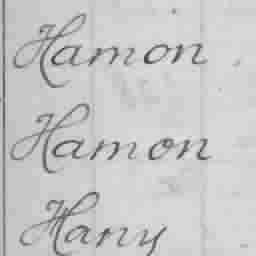 Hamon
Hamon
Hany